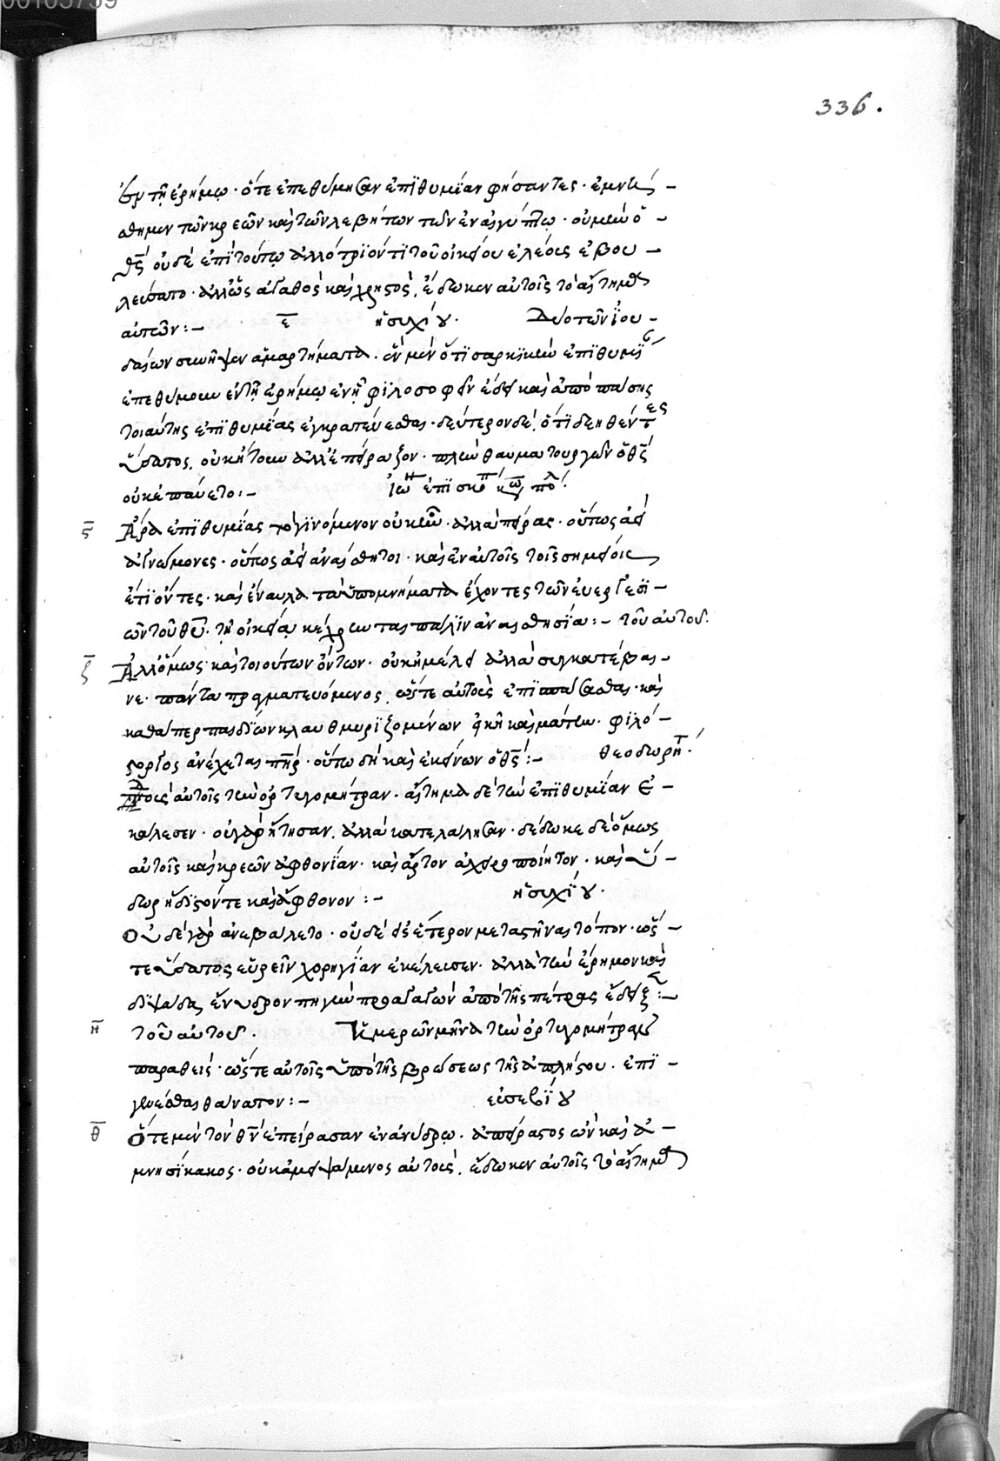 00103759
336.
ἐν τῇ ἐρήμῳ· ὅτε ἐπεθύμησαν ἐπιθυμίαν φήσαντες· ἐμνήσ-
θημεν τῶν κρεῶν καὶ τῶν λεβήτων τῶν ἐν αἰγύπτῳ· οὐ μὴν ὁ
θς οὐδὲ ἐπὶ τούτῳ ἀλλότριόν τι τοῦ οἰκείου ἐλέους ἐβου-
λεύσατο· ἀλλ' ὡς ἀγαθὸς καὶ χρηστὸς, ἔδωκεν αὐτοῖς τὸ αἴτημα
αὐτῶν:- ε ἡσυχίου. Δύο τῶν ἰου-
δαίων σιωπ ἁμαρτήματα· ἓν μὲν ὅτι σαρκικὴν ἐπιθυμίαν
ἐπεθύμουν ἐν τῇ ἐρήμῳ ἐν ᾗ φιλοσοφεῖν ἔδει καὶ ἀπὸ πάσης
τοιαύτης ἐπιθυμίας ἐγκρατεύεσθαι· δεύτερον δὲ, ὅτι δεηθέντες
ὕδατος, οὐκ ᾔτουν ἀλλ' ἐπείραζον· πλὴν θαυματουργῶν ὁ θς
οὐκ ἐπαύετο:- Ἰω ἐπισκο κω πό.
ς Ἆρα ἐπιθυμίας τὸ γινόμενον οὐκ ἦν· ἀλλὰ πείρας· οὕτως ἀεὶ
ἀγνώμονες· οὕτως ἀεὶ ἀναίσθητοι· καὶ ἐν αὐτοῖς τοῖς σημείοις
ἔτι ὄντες· καὶ ἔναυλα τὰ ὑπομνήματα ἔχοντες τῶν εὐεργεσι-
ῶν τοῦ θυ· τῇ οἰκείᾳ κέχρηνται πάλιν ἀναισθησία:- τοῦ αὐτοῦ.
ζ Ἀλλ' ὅμως καὶ τοιούτων ὄντων· οὐκ ἠμέλει ἀλλὰ συγκατέβαι-
νε· πάντα πραγματευόμενος, ὥστε αὐτοὺς ἐπισπάσασθαι· καὶ
καθάπερ παιδίων κλαυθμυριζομένων φιλό-
στοργος ἀνέχεται πηρ· οὕτω δὴ καὶ ἐκείνων ὁ θς:- θεοδωρήτ.
αὐτοῖς τὴν ὀρτυγομήτραν· αἴτημα δὲ τὴν ἐπιθυμίαν ἐ-
κάλεσεν· οὐ γὰρ ᾔτησαν, ἀλλὰ κατελάλησαν· δέδωκε δὲ ὅμως
αὐτοῖς καὶ κρεῶν ἀφθονίαν· καὶ ἄρτον ἀχειροποίητον· καὶ ὕ-
δωρ ἥδιστόν τε καὶ ἄφθονον:- ἡσυχίου.
Οὐδὲ γὰρ ἀνεβάλετο· οὐδὲ εἰς ἕτερον μεταστῆναι τόπον· ὥσ-
τε ὕδατος εὑρεῖν χορηγίαν ἐκέλευσεν· ἀλλὰ τὴν ἔρημον καὶ
διψάδα, ἔνυδρον πηγὴν προαγαγὼν ἀπὸ τῆς πέτρας ἔδειξε:-
η τοῦ αὐτοῦ. Ἡμερῶν μῆνα τὴν ὀρτυγομήτραν
παραθείς· ὥστε αὐτοῖς ὑπὸ τῆς βρώσεως τῆς ἀπλήστου· ἐπι-
γενέσθαι θάνατον:- εὐσεβίου
θ Ὅτε μὲν τὸν θν ἐπείρασαν ἐν ἀνύδρῳ· ἀπείραστος ὢν καὶ ἀ-
μνησίκακος· οὐκ ἀμειψάμενος αὐτοὺς, ἔδωκεν αὐτοῖς τὸ αἴτημα